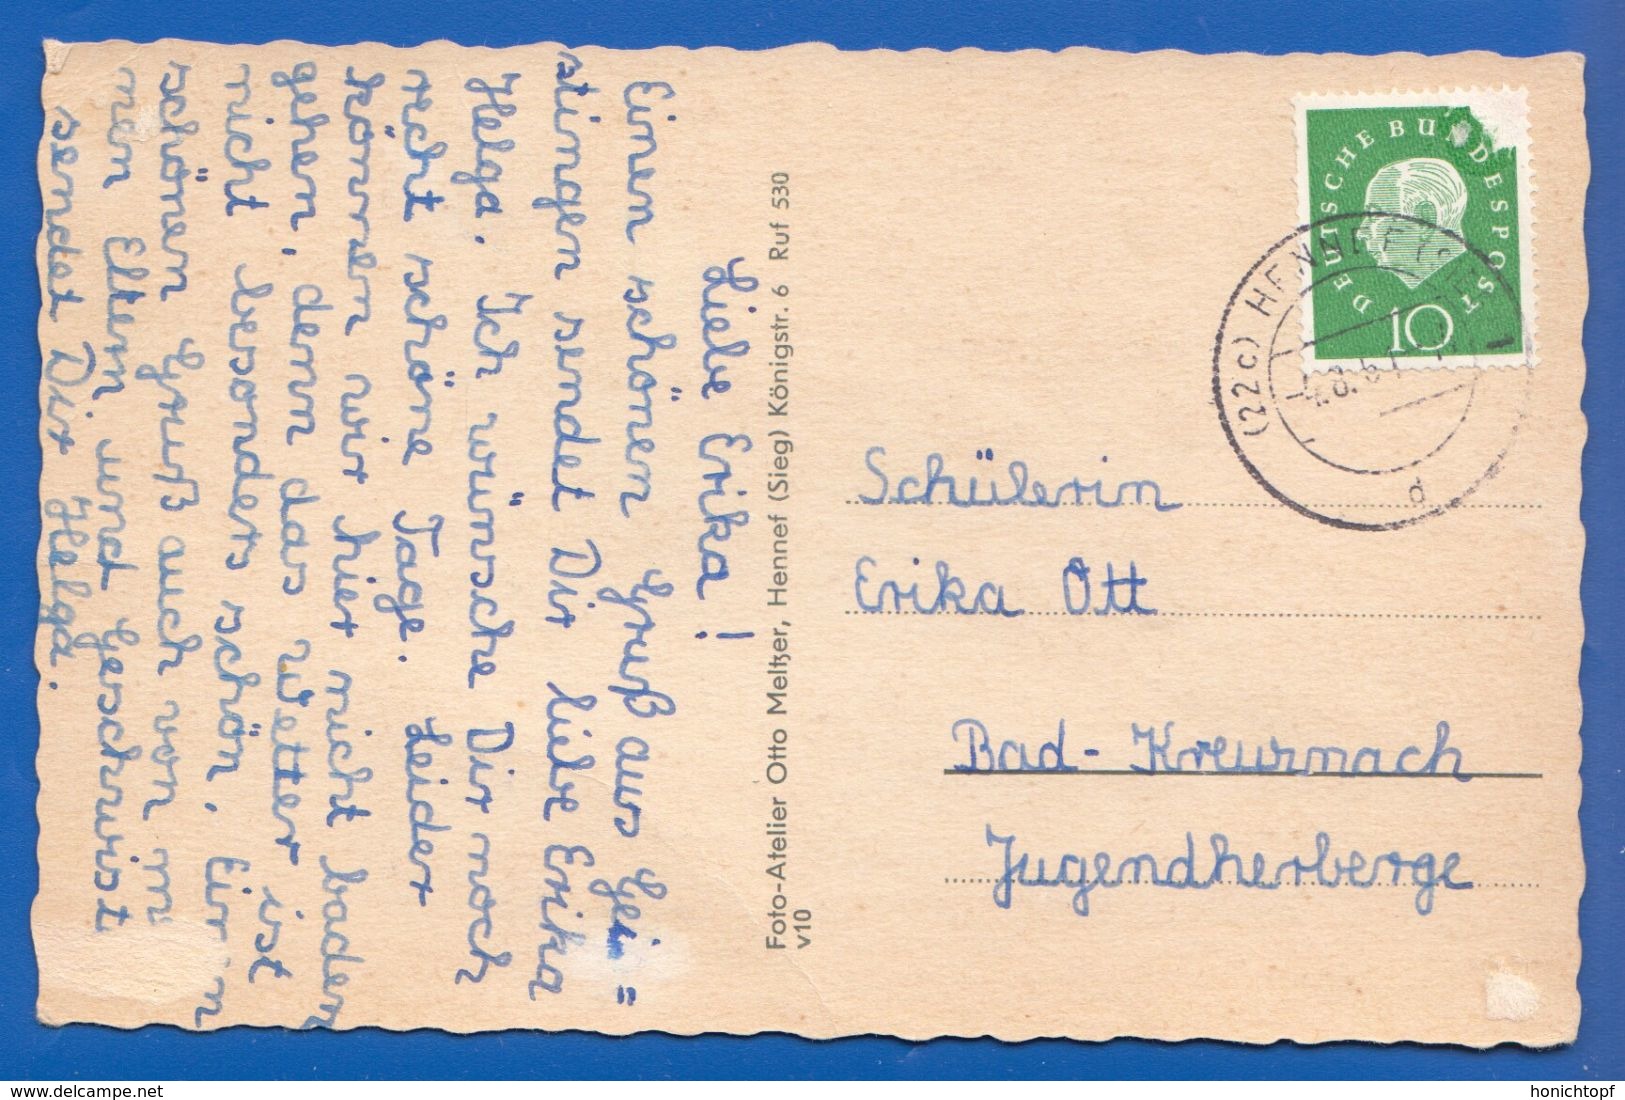 Liebe Erika!
Einen schönen Gruß aus Gei=
stingen sendet Dir liebe Erika
Helga. Ich wünsche Dir noch
recht schöne Tage. Leider
können wir hier nicht baden
gehen, denn das Wetter ist
nicht besonders schön. Ein n
schönen Gruß auch von m
nen Eltern und Geschwist
sendet Dir Helga.
Foto-Atelier Otto Meltzer, Hennef (Sieg) Königstr. 6 Ruf 530
v10
DEUTSCHE BUNDESPOST
10
(22c) HENNEF (SIEG)
d
Schülerin
Erika Ott
Bad-Kreuznach
Jugendherberge
delcampe.net
honichtopf